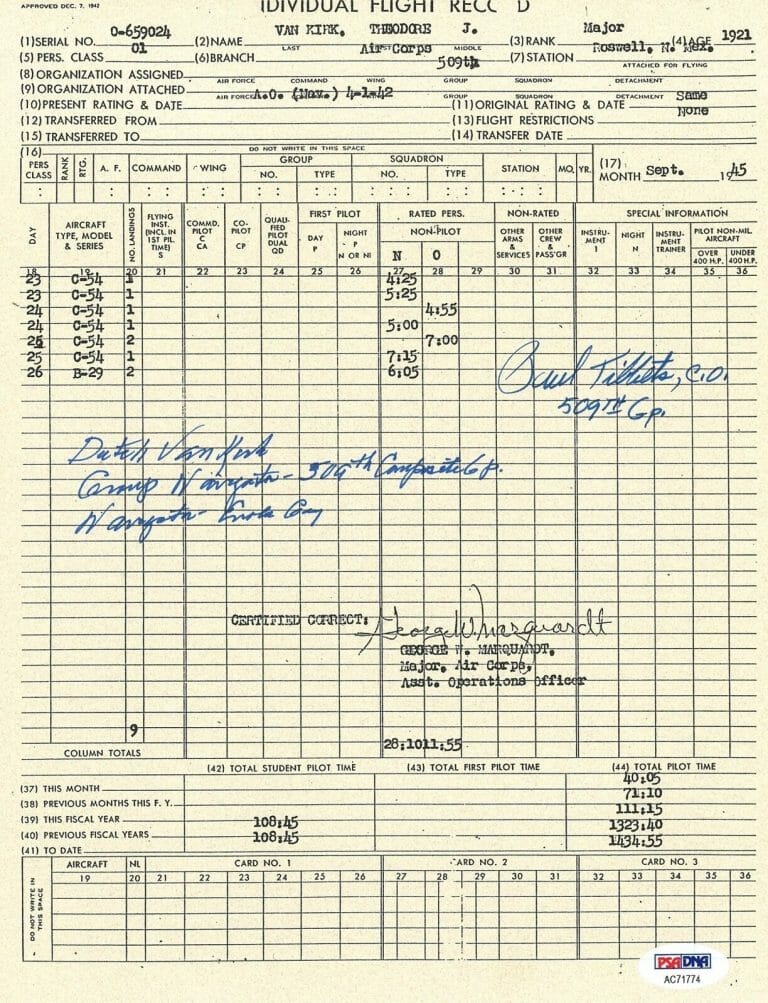 APPROVED DEC. 7, 1942
IDIVIDUAL FLIGHT RECC D
(1)SERIAL NO. 0-659024 (2)NAME VAN KIRK, THEODORE J. (3)RANK Major (4)AGE 1921
LAST FIRST MIDDLE
(5) PERS. CLASS 01 (6)BRANCH Air Corps (7)STATION Roswell, N. Mex.
509th
ATTACHED FOR FLYING
(8)ORGANIZATION ASSIGNED
AIR FORCE COMMAND WING GROUP SQUADRON DETACHMENT
(9)ORGANIZATION ATTACHED
AIR FORCE WING GROUP SQUADRON DETACHMENT
(10)PRESENT RATING & DATE A.O. (Nav.) 4-1-42 (11)ORIGINAL RATING & DATE Same
(12)TRANSFERRED FROM (13)FLIGHT RESTRICTIONS None
(15)TRANSFERRED TO (14)TRANSFER DATE
(16) DO NOT WRITE IN THIS SPACE
PERS CLASS RANK RTG. A. F. COMMAND WING GROUP NO. TYPE SQUADRON NO. TYPE STATION MO. YR. (17) MONTH Sept. 1945
DAY AIRCRAFT TYPE, MODEL & SERIES NO. LANDINGS FLYING INST. (INCL. IN 1ST PIL. TIME) S COMMD. PILOT C CA CO-PILOT CP QUALI-FIED PILOT DUAL QD FIRST PILOT DAY P NIGHT P N OR NI RATED PERS. NON-PILOT N O NON-RATED OTHER ARMS & SERVICES OTHER CREW & PASS'GR SPECIAL INFORMATION INSTRU-MENT I NIGHT N INSTRU-MENT TRAINER PILOT NON-MIL. AIRCRAFT OVER 400 H.P. UNDER 400 H.P.
18 19 20 21 22 23 24 25 26 27 28 29 30 31 32 33 34 35 36
23 C-54 1 4:25
23 C-54 1 5:25
24 C-54 1 4:55
24 C-54 1 5:00
25 C-54 2 7:00
25 C-54 1 7:15
26 B-29 2 6:05
Paul Tibbets, C.O.
509TH Gp.
Dutch Van Kirk
Group Navigator - 509th Composite Gp.
Navigator - Enola Gay
CERTIFIED CORRECT: George W. Marquardt
GEORGE W. MARQUARDT,
Major, Air Corps,
Asst. Operations Officer
9
COLUMN TOTALS 28:10 11:55
(42) TOTAL STUDENT PILOT TIME (43) TOTAL FIRST PILOT TIME (44) TOTAL PILOT TIME
(37) THIS MONTH 40:05
(38) PREVIOUS MONTHS THIS F. Y. 71:10
(39) THIS FISCAL YEAR 111:15
(40) PREVIOUS FISCAL YEARS 108:45 1323:40
(41) TO DATE 108:45 1434:55
AIRCRAFT NL CARD NO. 1 CARD NO. 2 CARD NO. 3
19 20 21 22 23 24 25 26 27 28 29 30 31 32 33 34 35 36
DO NOT WRITE IN THIS SPACE
PSA DNA
AC71774